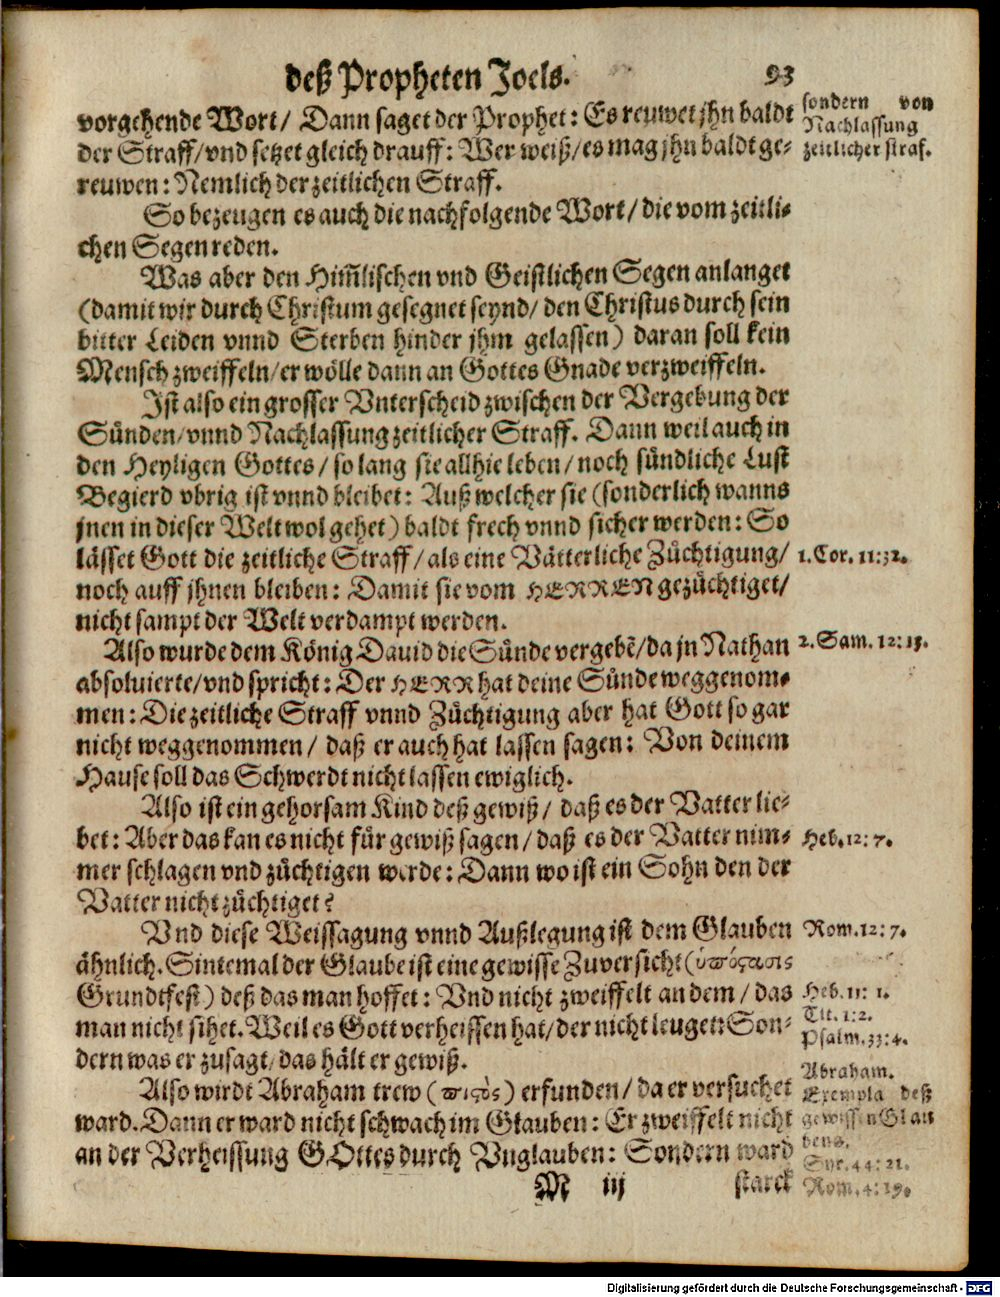 deß Propheten Joels. 93
vorgehende Wort/ Dann saget der Prophet: Es reuwet jhn baldt
der Straff/vnd setzet gleich drauff: Wer weiß/es mag jhn baldt ge-
reuwen: Nemlich der zeitlichen Straff.
So bezeugen es auch die nachfolgende Wort/die vom zeitli-
chen Segen reden.
Was aber den Him̃lischen vnd Geistlichen Segen anlanget
(damit wir durch Christum gesegnet seynd/ den Christus durch sein
bitter Leiden vnnd Sterben hinder jhm gelassen) daran soll kein
Mensch zweiffeln/er wölle dann an Gottes Gnade verzweiffeln.
Ist also ein grosser Vnterscheid zwischen der Vergebung der
Sünden/vnnd Nachlassung zeitlicher Straff. Dann weil auch in
den Heyligen Gottes/so lang sie allhie leben/noch sündliche Lust
Begierd vbrig ist vnnd bleibet: Auß welcher sie (sonderlich wanns
jnen in dieser Welt wol gehet) baldt frech vnnd sicher werden: So
lässet Gott die zeitliche Straff/als eine Vätterliche Züchtigung/
noch auff jhnen bleiben: Damit sie vom HERREN gezüchtiget/
nicht sampt der Welt verdampt werden.
Also wurde dem König Dauid die Sünde vergebẽ/da jn Nathan
absoluierte/vnd spricht: Der HERR hat deine Sünde weggenom-
men: Die zeitliche Straff vnnd Züchtigung aber hat Gott so gar
nicht weggenommen/ daß er auch hat lassen sagen: Von deinem
Hause soll das Schwerdt nicht lassen ewiglich.
Also ist ein gehorsam Kind deß gewiß/ daß es der Vatter lie-
bet: Aber das kan es nicht für gewiß sagen/daß es der Vatter nim-
mer schlagen vnd züchtigen werde: Dann wo ist ein Sohn den der
Vatter nicht züchtiget?
Vnd diese Weissagung vnnd Außlegung ist dem Glauben
ähnlich. Sintemal der Glaube ist eine gewisse Zuversicht (ὑπόςασις
Grundtfest) deß das man hoffet: Vnd nicht zweiffelt an dem/das
man nicht sihet. Weil es Gott verheissen hat/der nicht leuget: Son-
dern was er zusagt/das hält er gewiß.
Also wirdt Abraham trew (πιςὸς) erfunden/da er versuchet
ward. Dann er ward nicht schwach im Glauben: Er zweiffelt nicht
an der Verheissung GOttes durch Vnglauben: Sondern ward
M iij starck
sondern von
Nachlassung
zeitlicher straf.
1. Cor. 11:32.
2. Sam. 12:13.
Heb. 12:7.
Rom. 12:7.
Heb. 11: 1.
Tit. 1:2.
Psalm. 33:4.
Abraham.
Exempla deß
gewissen Glau
bens.
Syr. 44:21.
Rom. 4:19.
Digitalisierung gefördert durch die Deutsche Forschungsgemeinschaft - DFG